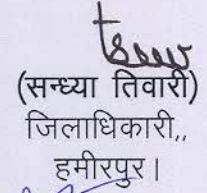 (सन्ध्या तिवारी)
जिलाधिकारी,,
हमीरपुर।